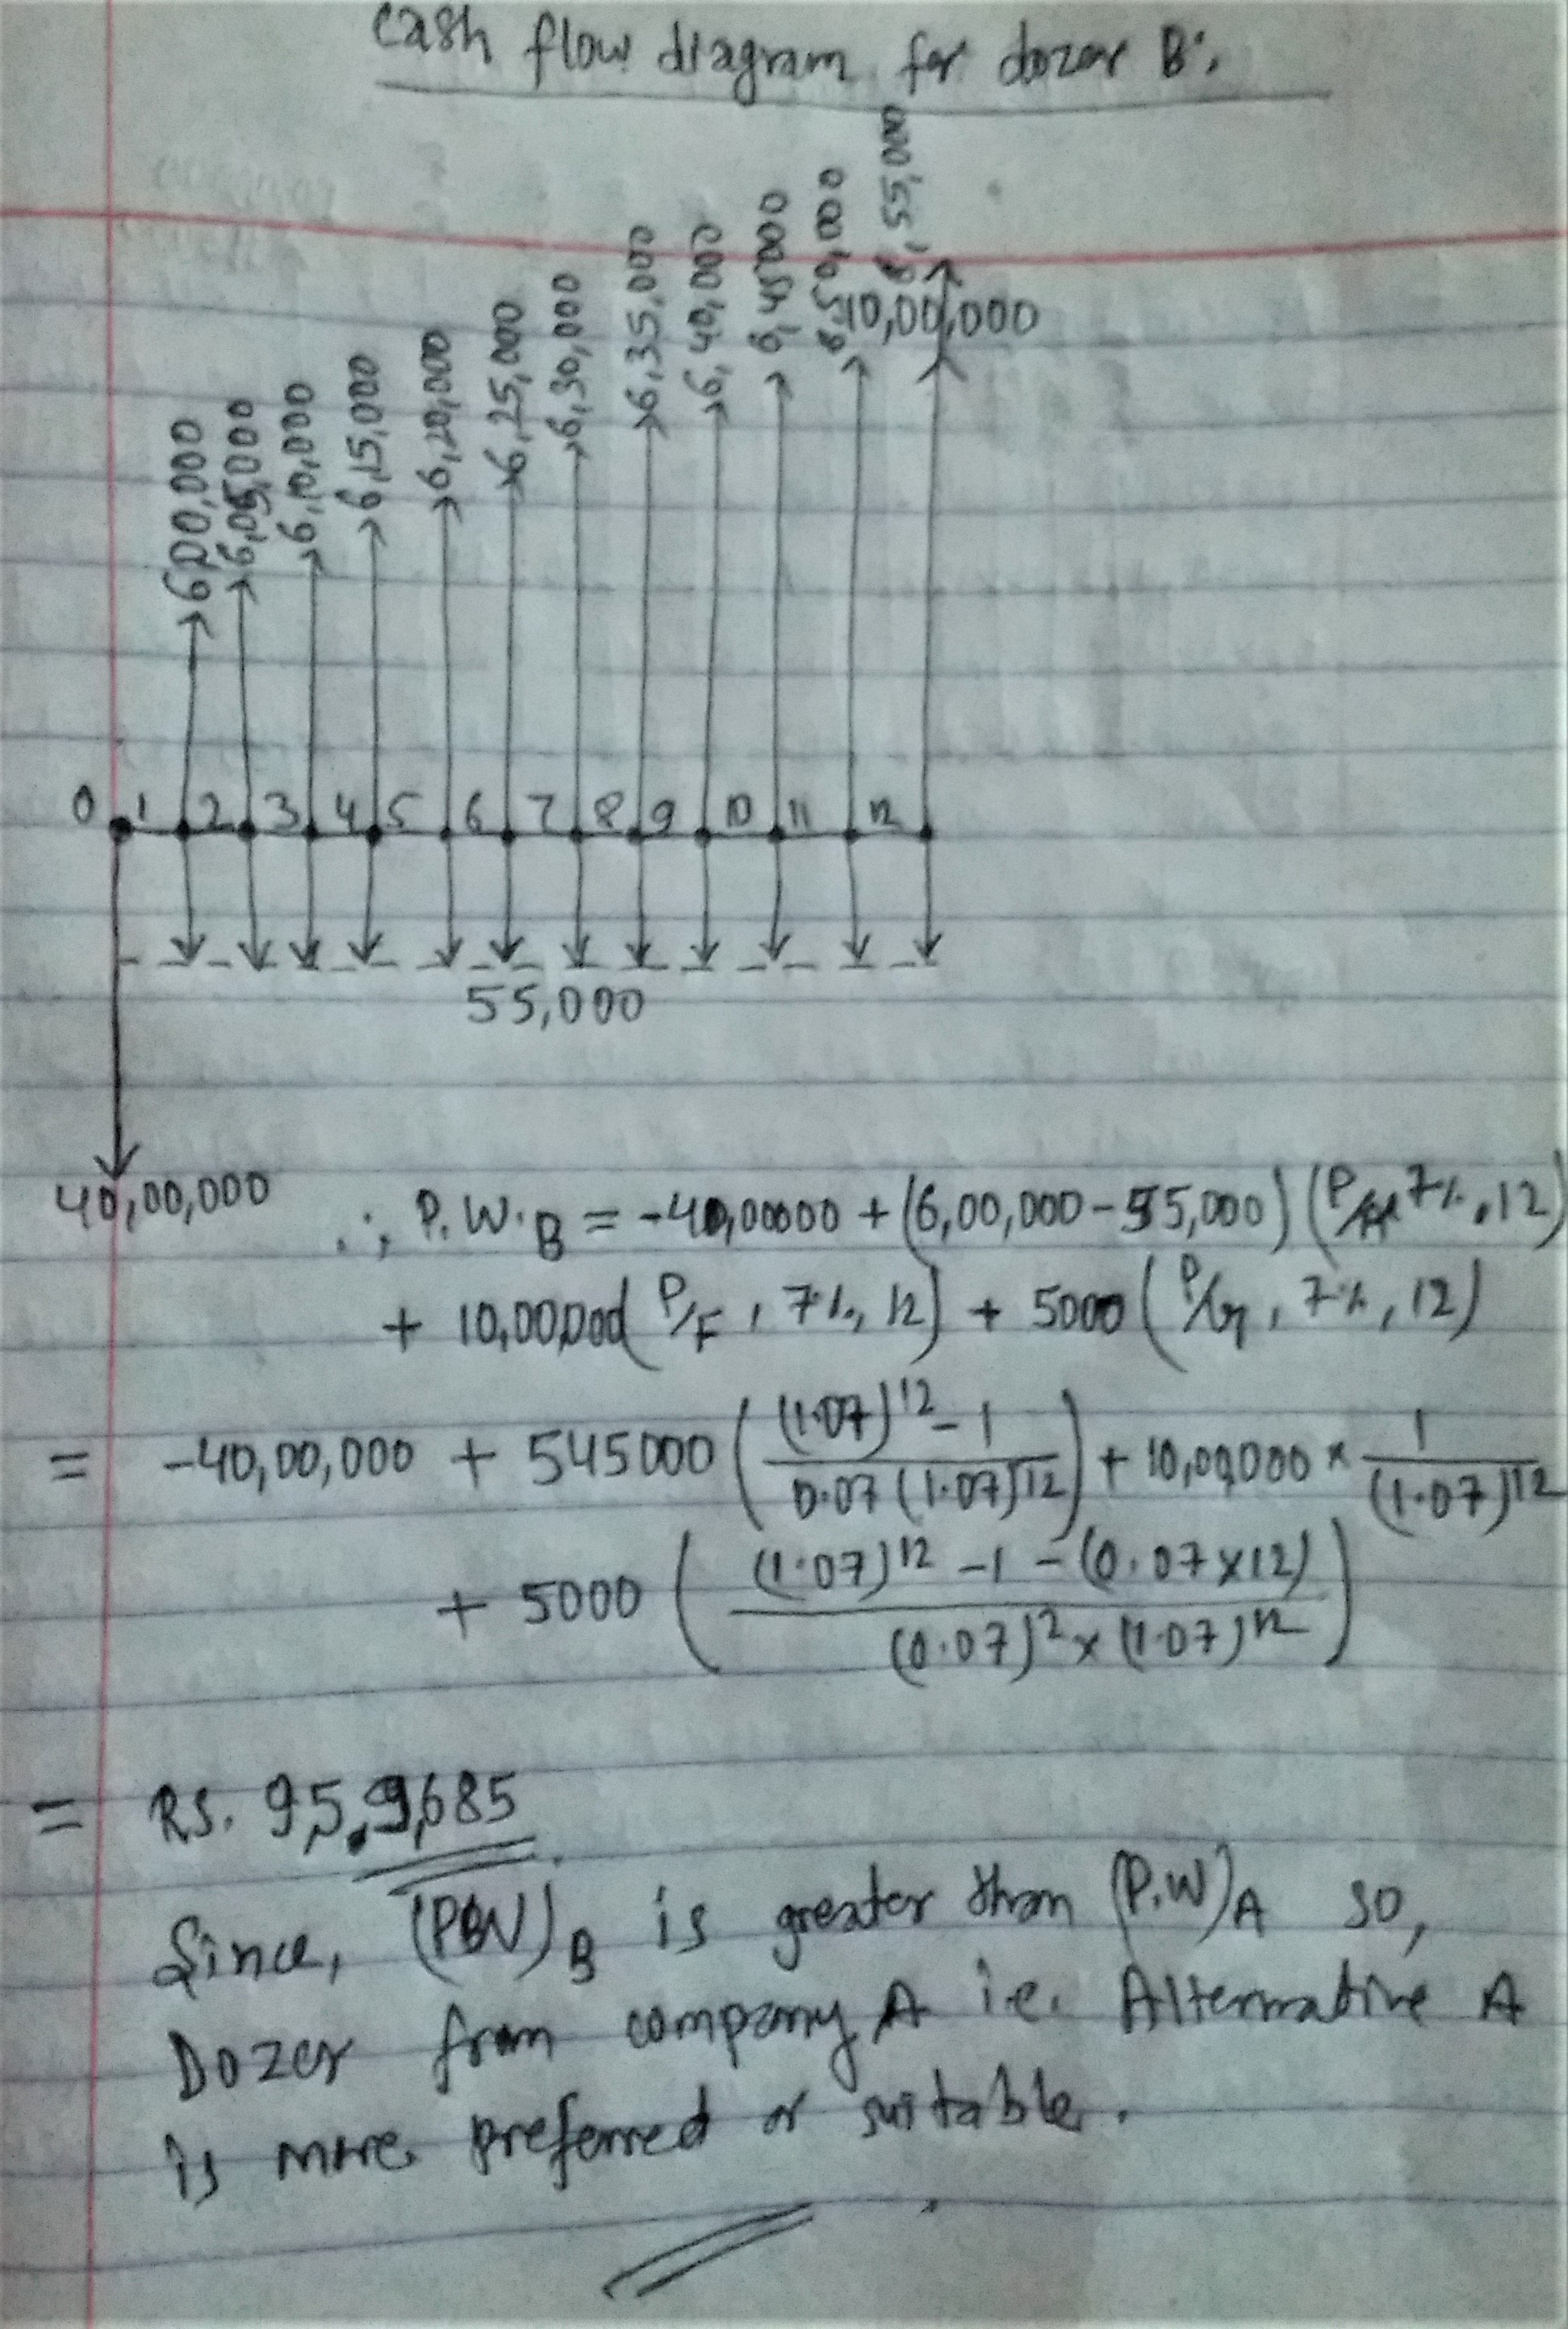 Cash flow diagram for dozer B:
6,00,000
6,05,000
6,10,000
6,15,000
6,20,000
6,25,000
6,30,000
6,35,000
6,40,000
6,45000
6,50,000
6,55,000
10,00,000
0 1 2 3 4 5 6 7 8 9 10 11 12
55,000
40,00,000
∴ P.W.B = -40,00000 + (6,00,000 - 55,000) (P/A, 7%, 12)
+ 10,00,000( P/F, 7%, 12) + 5000 ( P/G, 7%, 12)
= -40,00,000 + 545000 ( (1.07)^12 - 1 / 0.07 (1.07)^12 ) + 10,00,000 × 1 / (1.07)^12
+ 5000 ( (1.07)^12 - 1 - (0.07×12) / (0.07)^2 × (1.07)^12 )
= RS. 95,9,685
Since, (PW)B is greater than (P.W)A so,
Dozer from company A i.e. Alternative A
is more preferred or suitable.